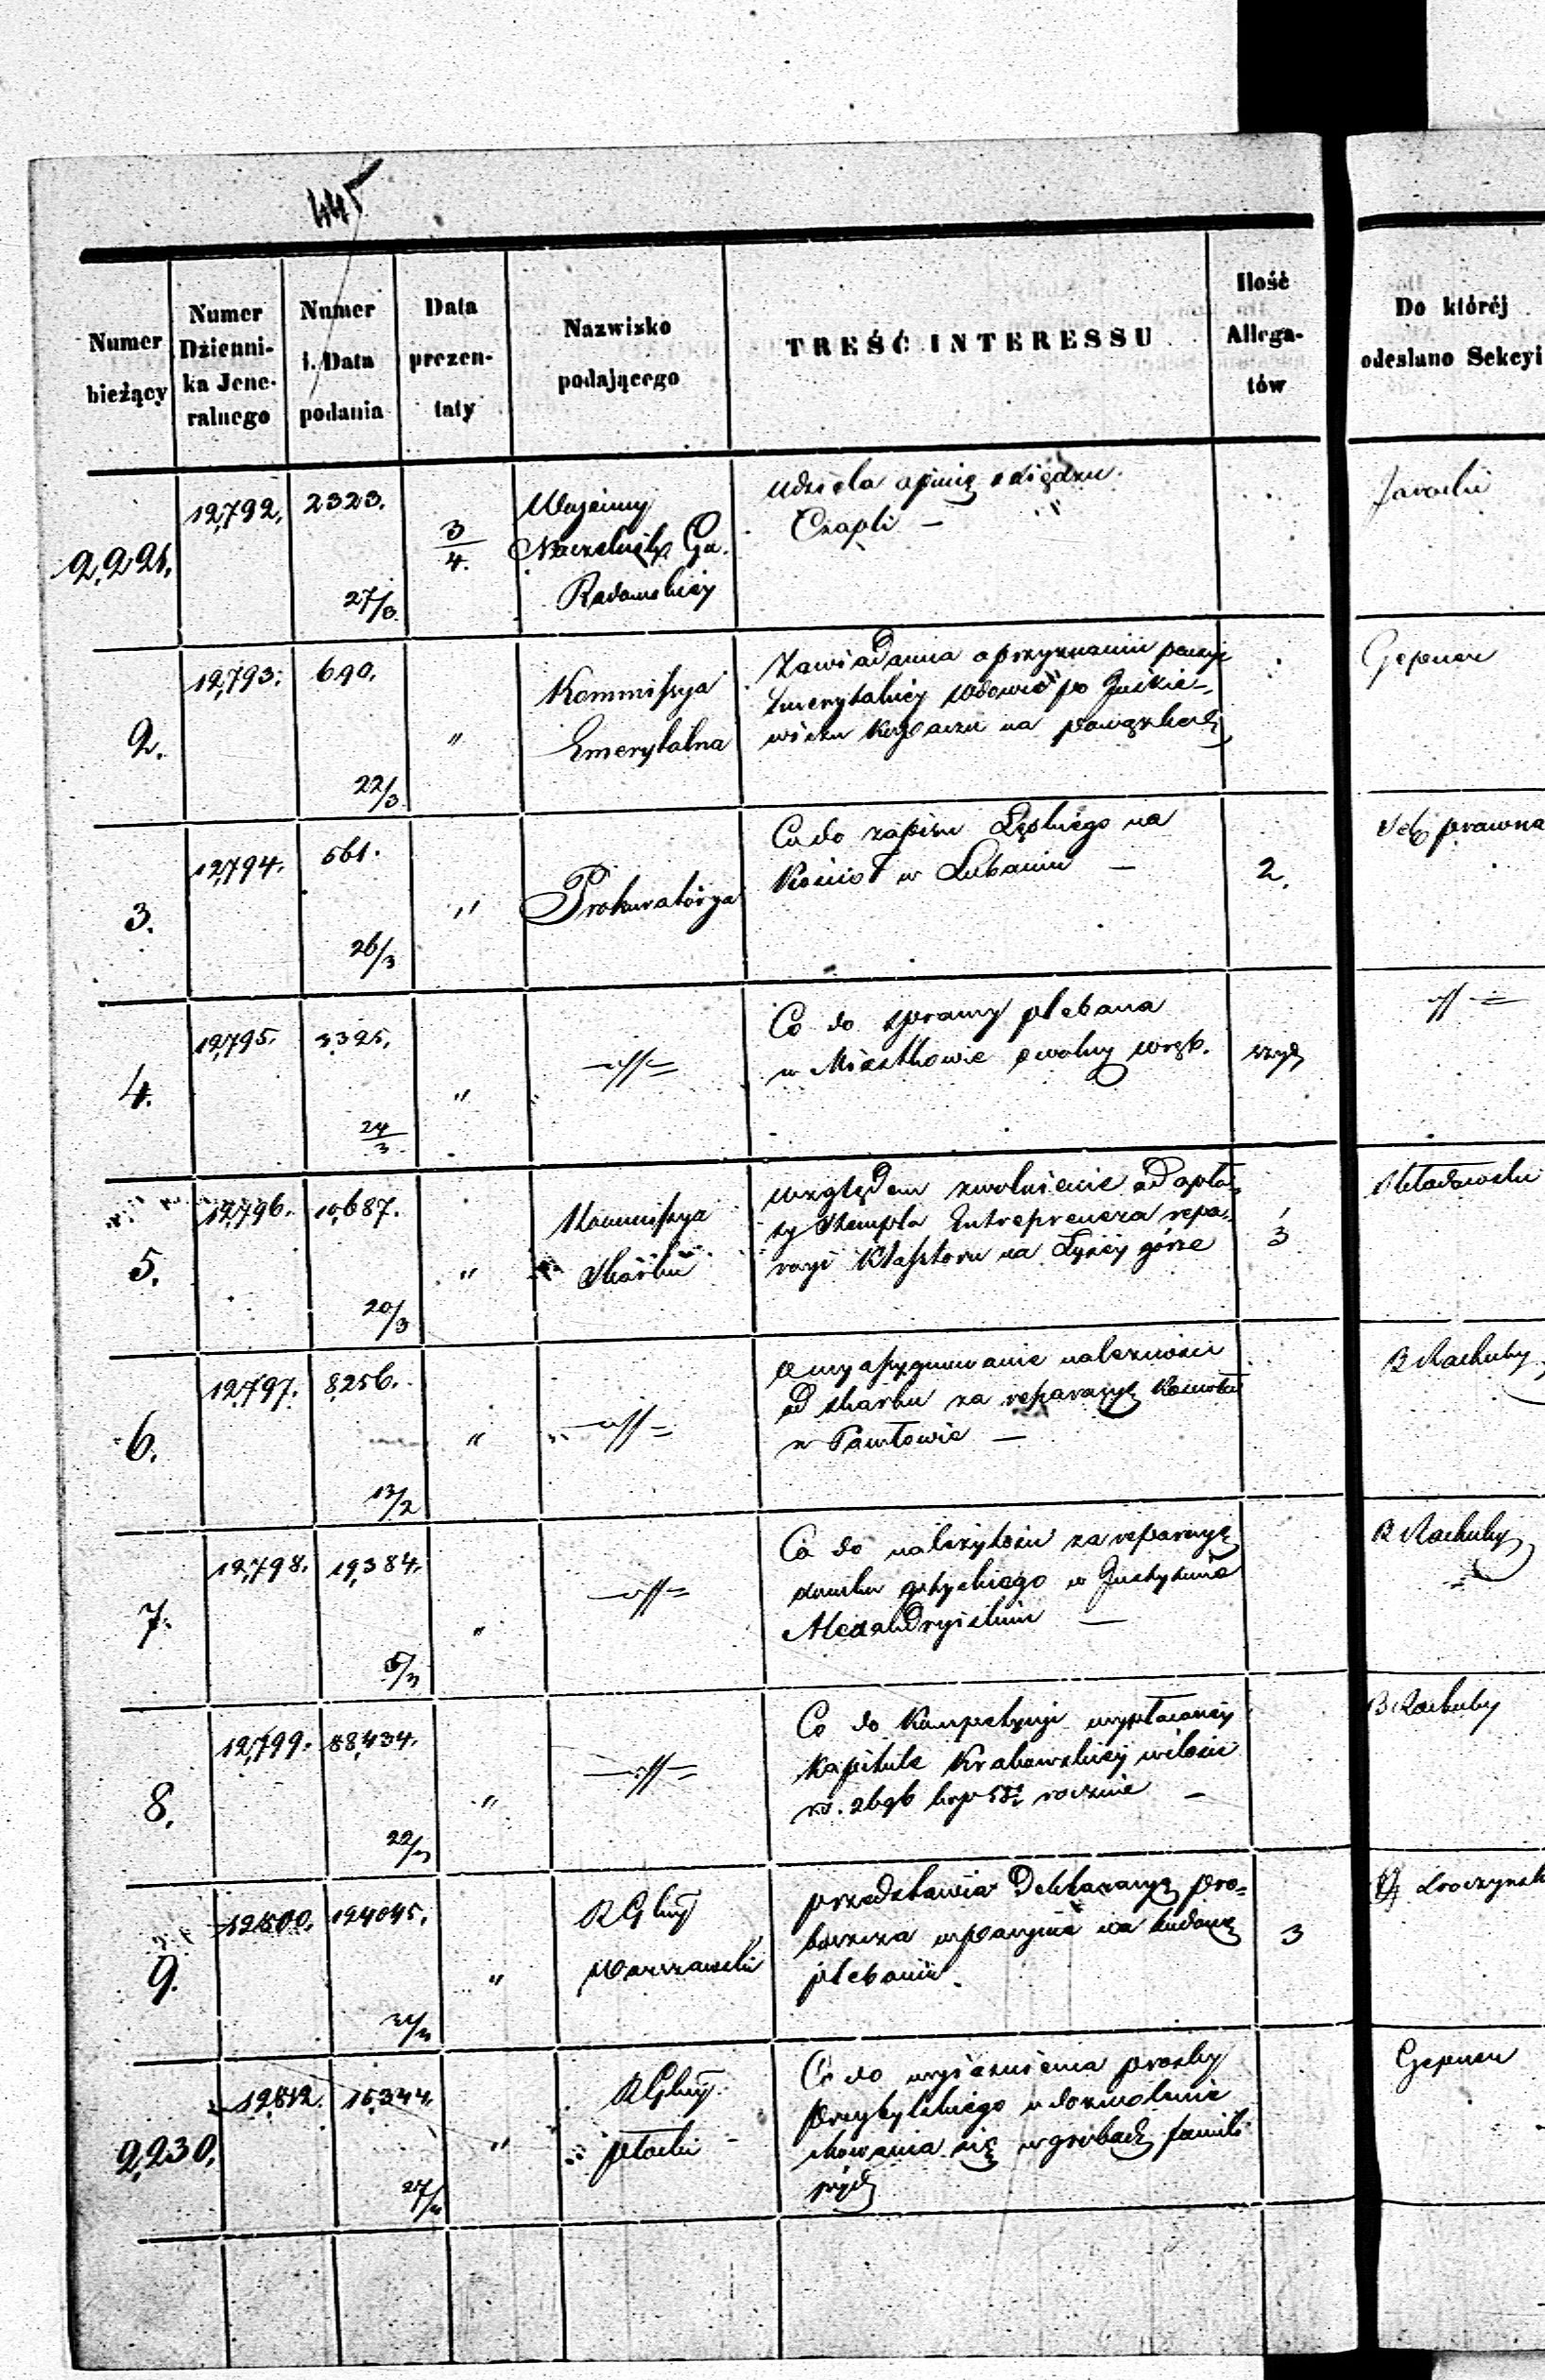 445
Numer bieżący
Numer Dzienni-ka Jene-ralnego
Numer i Data podania
Data prezen-taty
Nazwisko podającego
TREŚĆ INTERESSU
Ilość Allega-tów
Do któréj odesłano Sekcyi
2,221.
12,792.
2323.
27/3
3/4.
Wojenny
Naczelnik Gu.
Radomskiéj
Udziela opinię o księdzu
Czapli —
2.
12,793.
690.
22/3
"
Kommissya
Emerytalna
Zawiadamia o przyznaniu pensyi
Emerytalnéj wdowie po
na Powązkach
Gepner
3.
12,794.
561.
26/3
"
Prokuratorya
Co do zapisu na
Kościół w Lubaniu —
2.
prawna
4.
12,795.
3325.
24/3
"
—"=
Co do sprawy plebana
w Miastkowie o wolny wręb.
"=
5.
12,796.
10,687.
20/3
"
Kommissya
Skarbu
względem zwolnienie od opła-
ty stempla Entreprenera repa-
racyi Klasztoru na Łyséj górze
3
6.
12,797.
8,256.
13/2
"
—"=
o wyassygnowanie należności
od skarbu za reparacyę Kościoła
w Pawłowie —
B Rachuby
7.
12,798.
19,384.
"
—"=
Co do należytości za reparacyę
domku gotyckiego w Instytucie
Alexandryiskim —
B Rachuby
8.
12,799.
88,434.
22/3
"
—"=
Co do Kompetencyi wypłacanéj
Kapitule Krakowskiéj w ilości
rs. 2696 kop rocznie —
B Rachuby
9.
12800.
124045.
"
R Glny
Warszawski
przedstawia Deklaracyę pro-
boszcza na budowę
plebanii.
3
2,230.
12,812.
15,344.
"
R Glny
Płocki
Co do wyjaśnienia prosby
Przybylskiego o dozwolenie
chowania się w grobach famili
jnych
Gepner